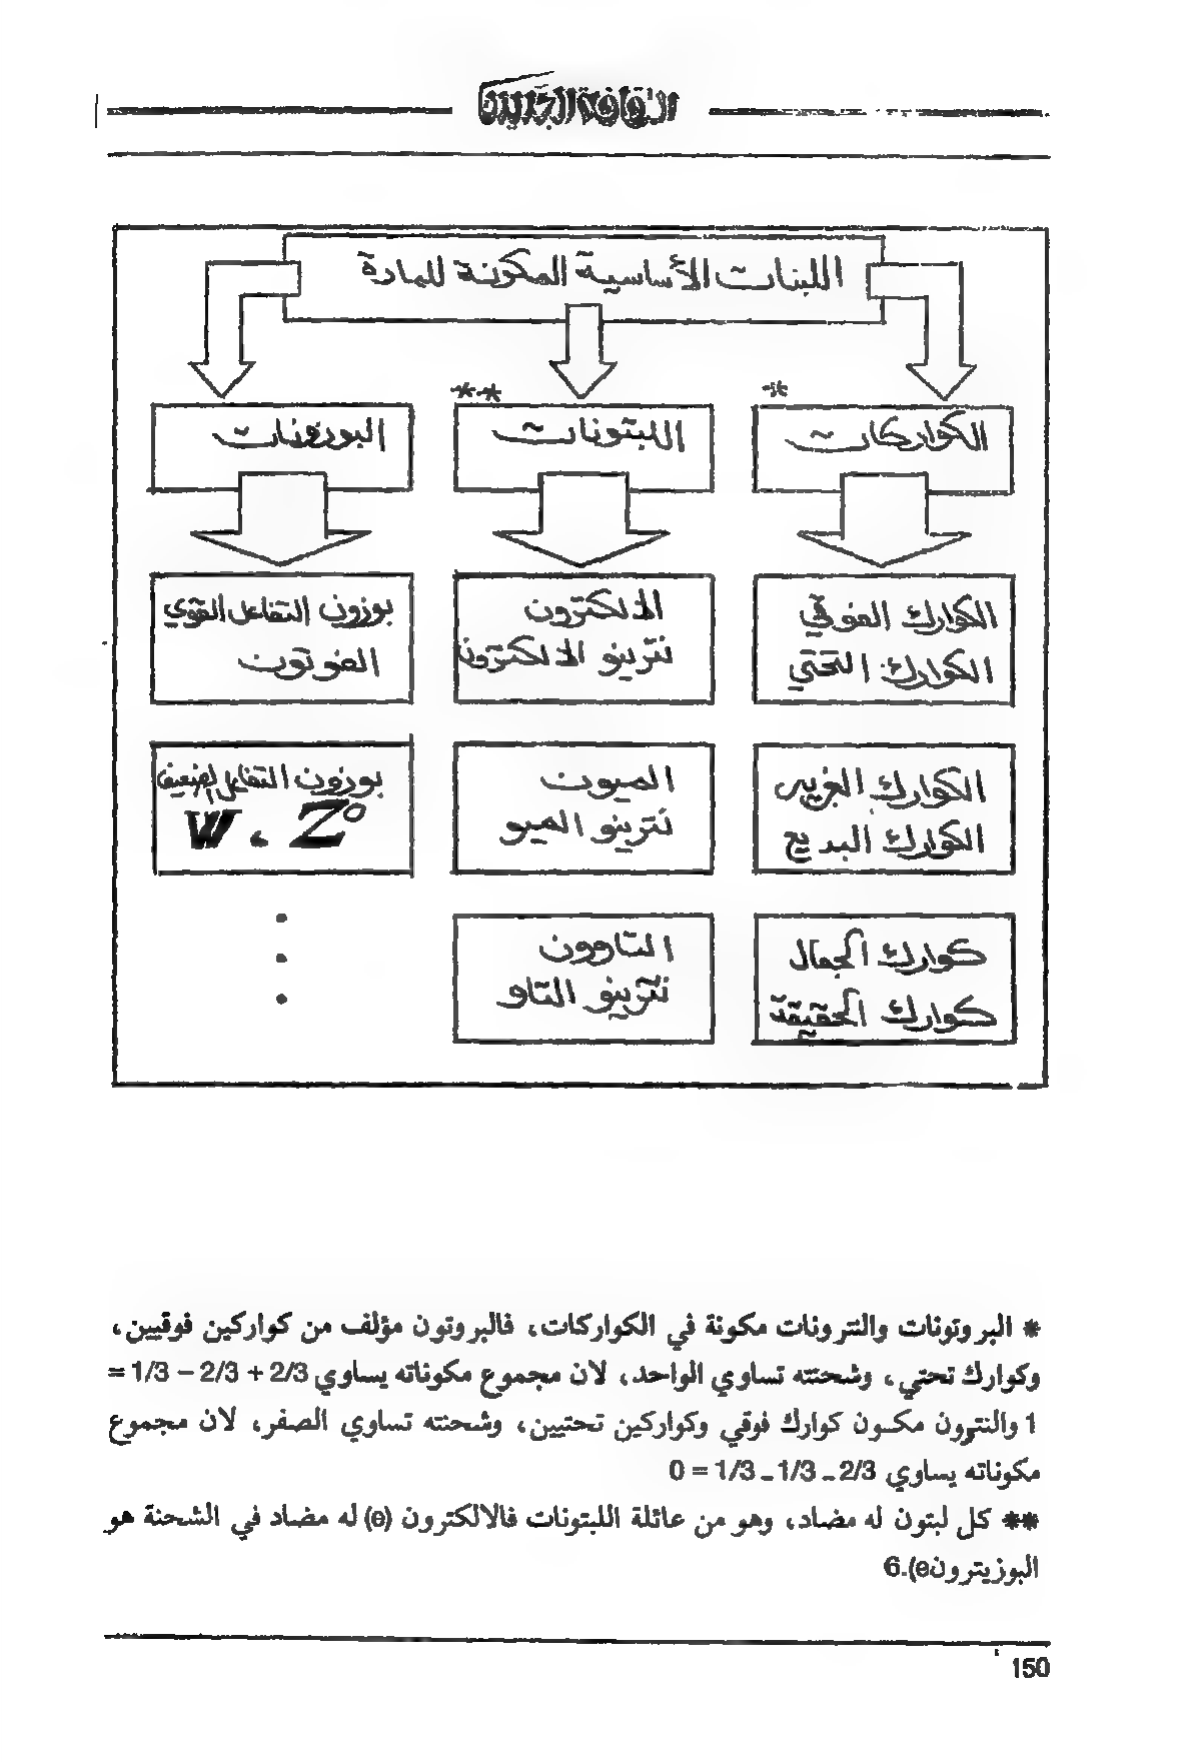 الثقافة الجديدة
اللبنات الأساسية المكونة للمادة
*
الكواركات
**
اللبتونات
البوزونات
الكوارك الفوقي
الكوارك التحتي
الالكترون
نترينو الالكترون
بوزون التفاعل القوي
الفوتون
الكوارك الغريب
الكوارك البديع
الميون
نترينو الميو
بوزون التفاعل الضعيف
W ، Z°
كوارك الجمال
كوارك الحقيقة
التاوون
نترينو التاو
* البروتونات والنترونات مكونة في الكواركات، فالبروتون مؤلف من كواركين فوقيين،
وكوارك تحتي، وشحنته تساوي الواحد، لان مجموع مكوناته يساوي 2/3 + 2/3 – 1/3 =
1 والنترون مكون كوارك فوقي وكواركين تحتيين، وشحنته تساوي الصفر، لان مجموع
مكوناته يساوي 2/3 ـ 1/3 ـ 1/3 = 0
** كل لبتون له مضاد، وهو من عائلة اللبتونات فالالكترون (e) له مضاد في الشحنة هو
البوزيترونe).6
150